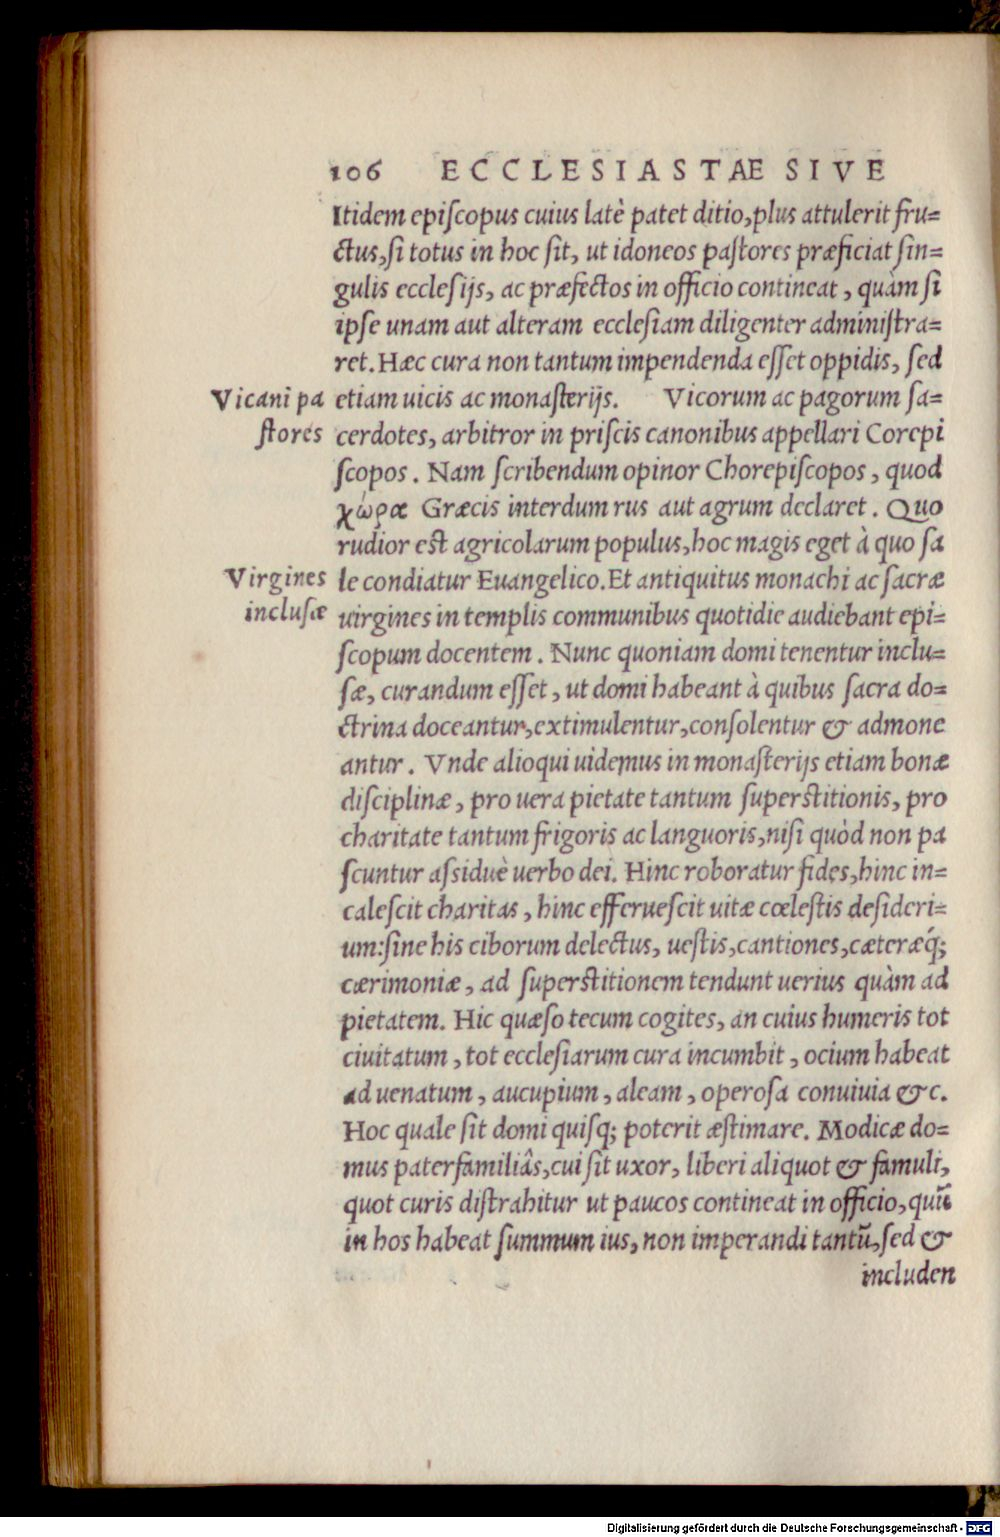 106 ECCLESIASTAE SIVE
Itidem epiſcopus cuius latè patet ditio, plus attulerit fru=
ctus, ſi totus in hoc ſit, ut idoneos paſtores præficiat ſin=
gulis eccleſijs, ac præfectos in officio contineat, quàm ſi
ipſe unam aut alteram eccleſiam diligenter adminiſtra=
ret. Hæc cura non tantum impendenda eſſet oppidis, ſed
Vicani pa
ſtores
etiam uicis ac monaſterijs. Vicorum ac pagorum ſa=
cerdotes, arbitror in priſcis canonibus appellari Corepi
ſcopos. Nam ſcribendum opinor Chorepiſcopos, quod
χώραε Græcis interdum rus aut agrum declaret. Quo
rudior est agricolarum populus, hoc magis eget à quo ſa
Virgines
incluſæ
le condiatur Euangelico. Et antiquitus monachi ac ſacræ
uirgines in templis communibus quotidie audiebant epi=
ſcopum docentem. Nunc quoniam domi tenentur inclu=
ſæ, curandum eſſet, ut domi habeant à quibus ſacra do=
ctrina doceantur, extimulentur, conſolentur & admone
antur. Vnde alioqui uidemus in monaſterijs etiam bonæ
diſciplinæ, pro uera pietate tantum ſuperstitionis, pro
charitate tantum frigoris ac languoris, niſi quòd non pa
ſcuntur aſsiduè uerbo dei. Hinc roboratur fides, hinc in=
caleſcit charitas, hinc efferueſcit uitæ cœleſtis deſideri=
um: ſine his ciborum delectus, ueſtis, cantiones, cæteræq́;
cærimoniæ, ad ſuperstitionem tendunt uerius quàm ad
pietatem. Hic quæſo tecum cogites, an cuius humeris tot
ciuitatum, tot eccleſiarum cura incumbit, ocium habeat
ad uenatum, aucupium, aleam, operoſa conuiuia &c.
Hoc quale ſit domi quiſq; poterit æſtimare. Modicæ do=
mus paterfamiliâs, cui ſit uxor, liberi aliquot & famuli,
quot curis diſtrahitur ut paucos contineat in officio, quũ
in hos habeat ſummum ius, non imperandi tantũ, ſed &
includen
Digitalisierung gefördert durch die Deutsche Forschungsgemeinschaft - DFG